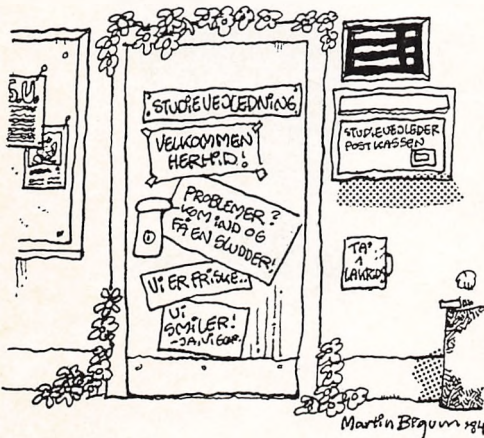 S.U.
STUDIEVEJLEDNING
VELKOMMEN
HERHID!
PROBLEMER?
KOM IND OG
FÅ EN SLUDDER!
VI ER FRISKE..
VI
SMILER!
-JA, VI GØR.
STUDIEVEJLEDER
POSTKASSEN
TA'
1
LAKRID
Martin Bigum '84